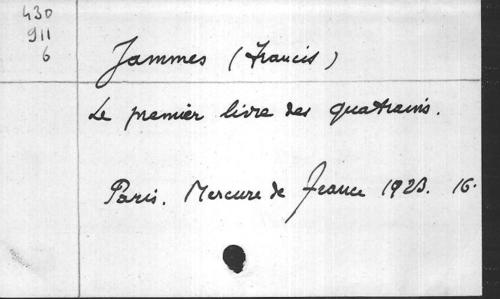 430
911
6
Jammes (Francis)
Le premier livre des quatrains.
Paris. Mercure de France 1923. 16.